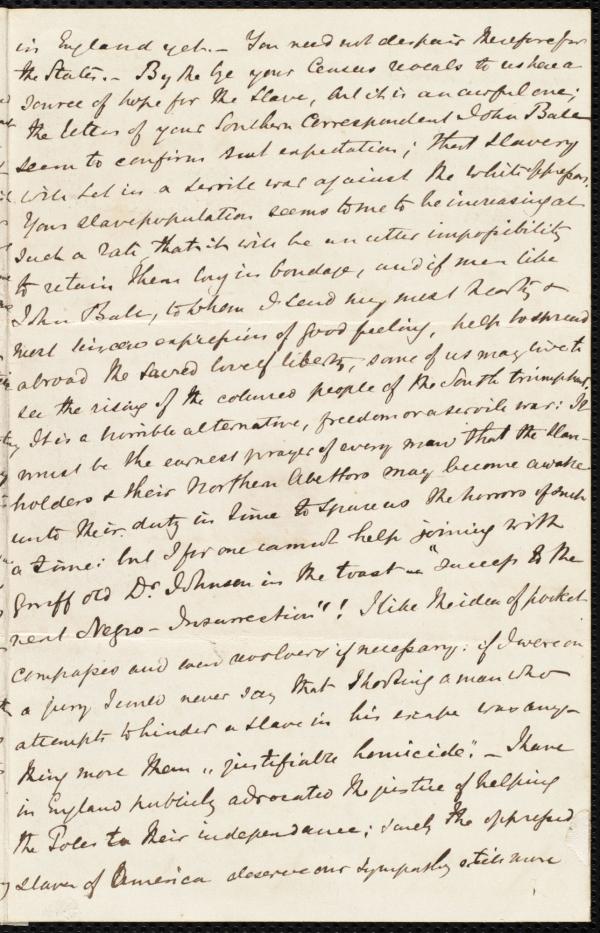 in England yet. — You need not despair therefore for
the States. — By the bye your Census reveals to us here a
source of hope for the slave, but it is an awful one;
the letters of your Southern Correspondent John Ball
seem to confirm that expectation; that slavery
will set in a servile war against the white oppressor.
Your slave population seems to me to be increasing at
such a rate, that it will be an utter impossibility
to retain them long in bondage, and if men like
John Ball, to whom I send my most hearty &
most sincere expressions of good feeling, help to spread
abroad the sacred love of liberty, some of us may live to
see the rising of the coloured people of the South triumphant.
It is a horrible alternative, freedom or a servile war: It
must be the earnest prayer of every man that the slave-
holders & their Northern Abettors may become awake
unto their duty in time to spare us the horrors of such
a time: but I for one cannot help joining with
gruff old Dr. Johnson in the toast — "success to the
next Negro-Insurrection"! I like the idea of pocket
compasses and even revolvers if necessary: if I were on
a jury I would never say that shooting a man who
attempts to hinder a slave in his escape was any-
thing more than "justifiable homicide". — I have
in England publicly advocated the justice of helping
the Poles to their independance; surely the oppressed
slaves of America deserve our sympathy still more